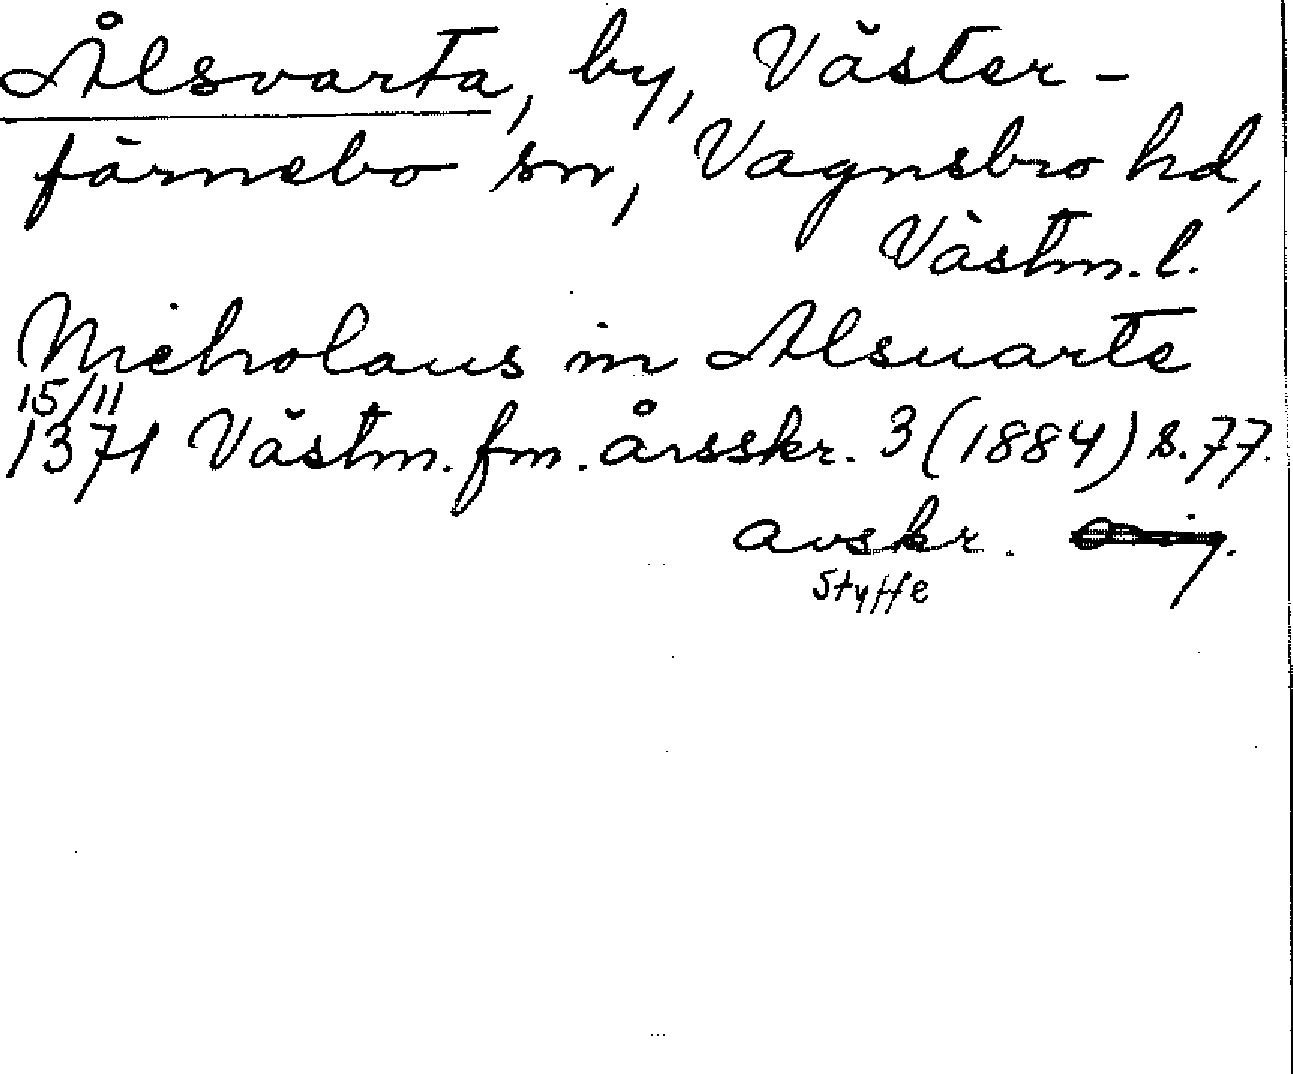 Ålsvarta, by, Väster-
färnebo sn, Vagnsbro hd,
Västm. l.
Nicholaus in Alsuarte
15/11
1371 Västm. fm. årsskr. 3 (1884) s. 77.
avskr. Orig.
Styffe